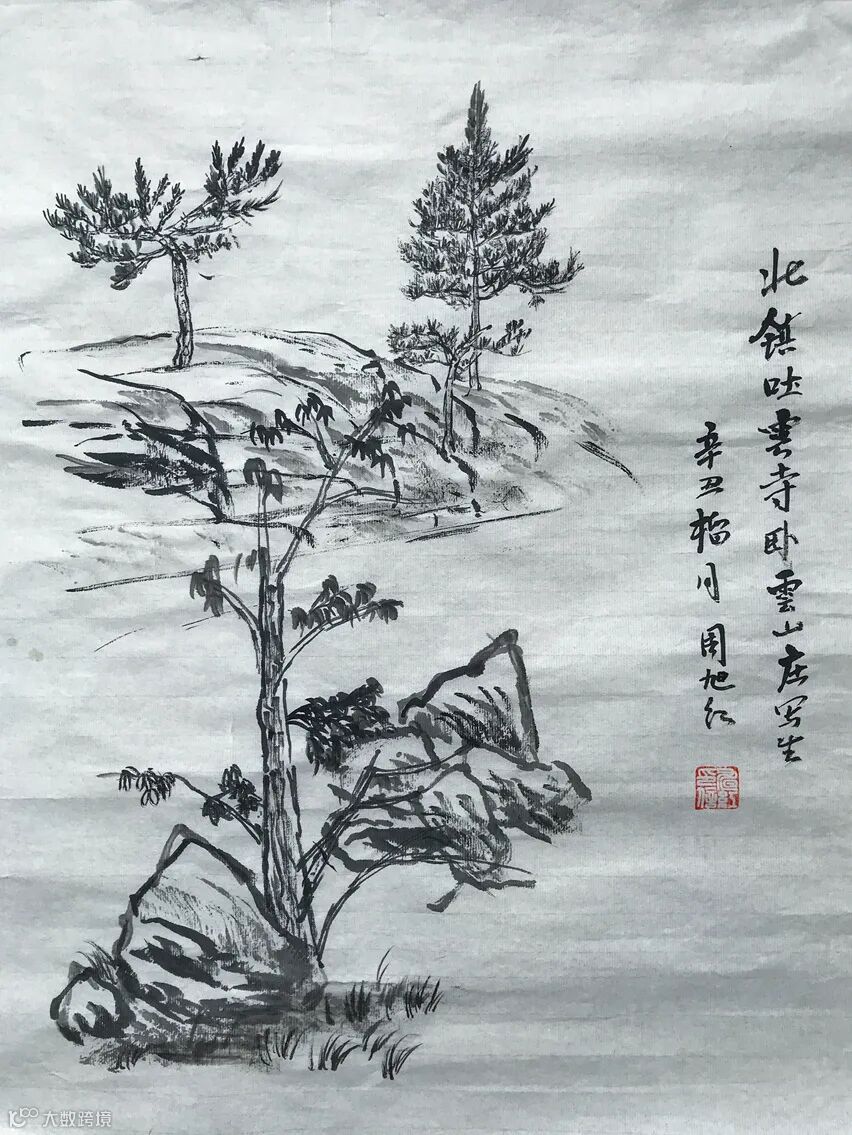 北镇吐雲寺卧雲山庄写生
辛丑榴月 周旭红
大数跨境